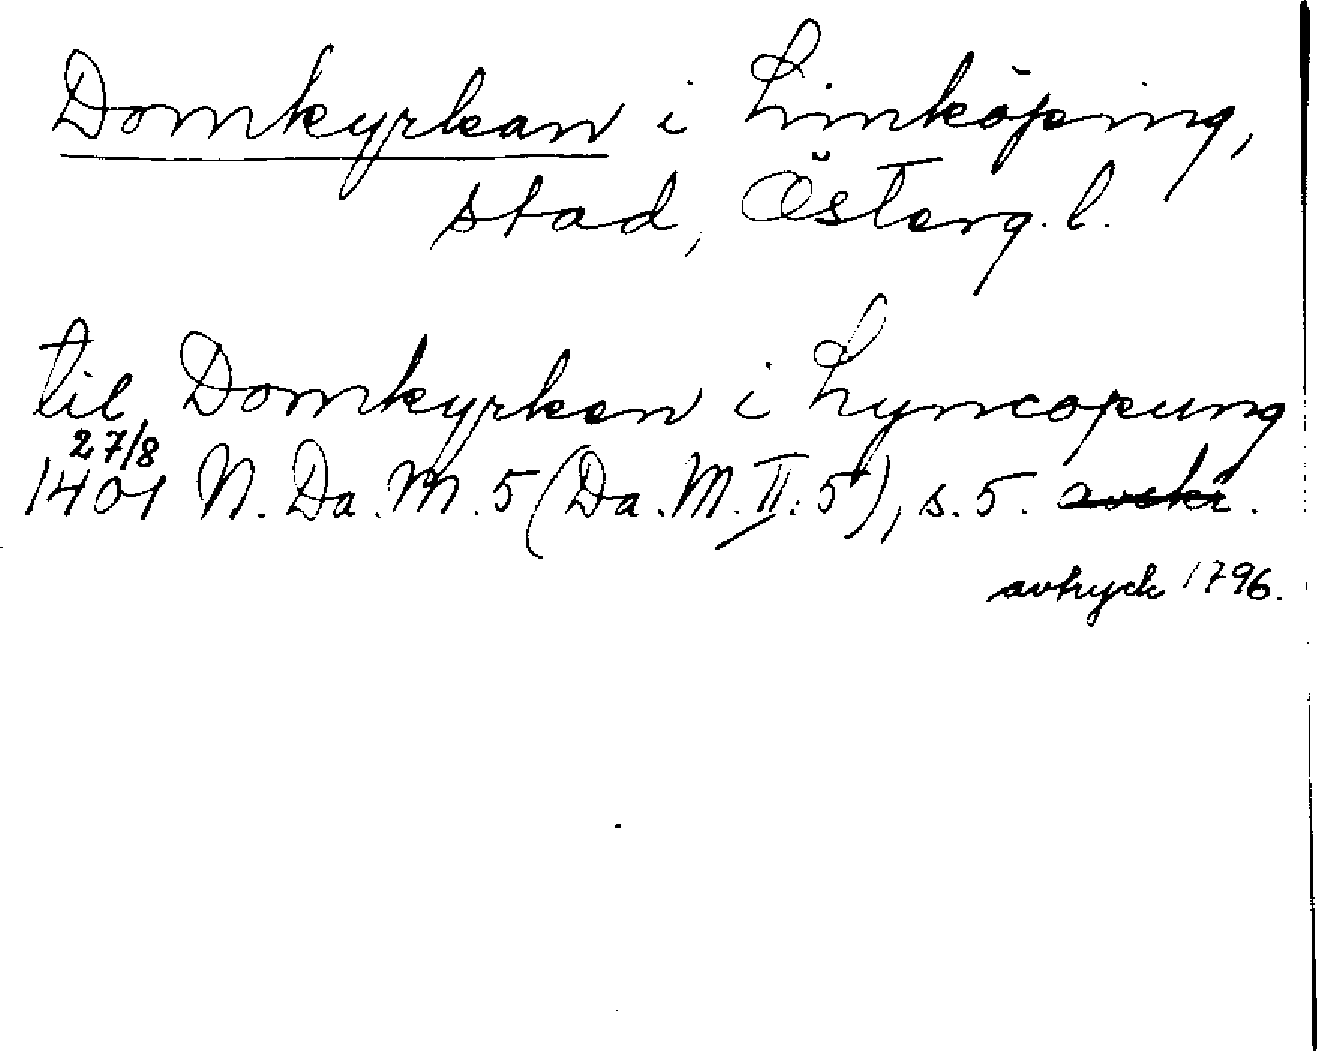 Domkyrkan i Linköping,
stad, Österg. l.
til Domkyrken i Lyncopung
27/8
1401 N. Da. M. 5 (Da. M. II. 5), s. 5. avskr.
avtryck 1796.